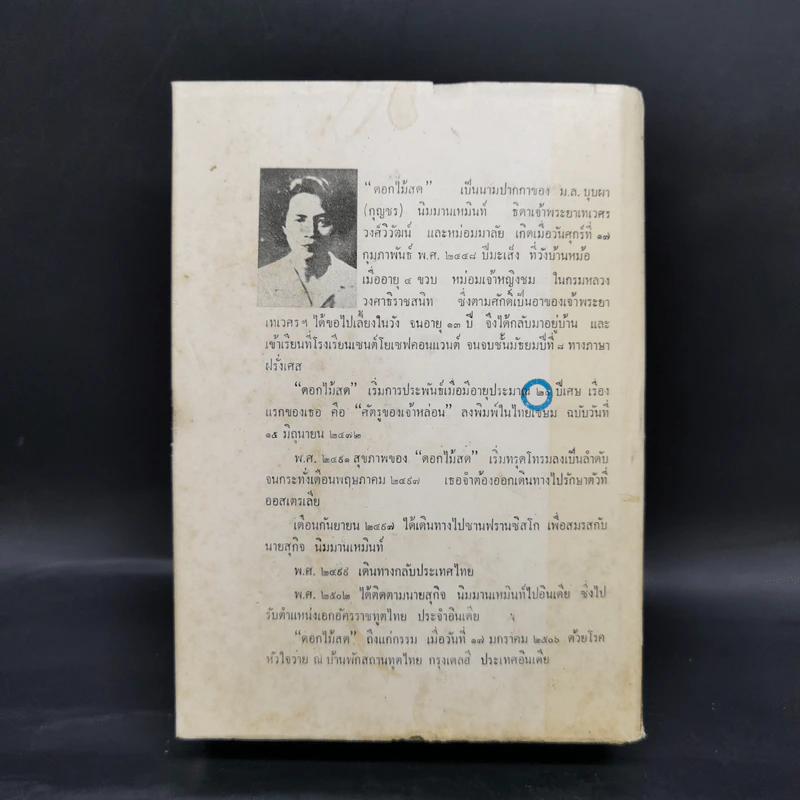 “ดอกไม้สด” เป็นนามปากกาของ ม.ล. บุบผา
(กุญชร) นิมมานเหมินท์ ธิดาเจ้าพระยาเทเวศร
วงศ์วิวัฒน์ และหม่อมมาลัย เกิดเมื่อวันศุกร์ที่ ๑๗
กุมภาพันธ์ พ.ศ. ๒๔๔๘ ปีมะเส็ง ที่วังบ้านหม้อ
เมื่ออายุ ๔ ขวบ หม่อมเจ้าหญิงชม ในกรมหลวง
วงศาธิราชสนิท ซึ่งตามศักดิ์เป็นอาของเจ้าพระยา
เทเวศรฯ ได้ขอไปเลี้ยงในวัง จนอายุ ๑๓ ปี จึงได้กลับมาอยู่บ้าน และ
เข้าเรียนที่โรงเรียนเซนต์โยเซฟคอนแวนต์ จนจบชั้นมัธยมปีที่ ๘ ทางภาษา
ฝรั่งเศส
“ดอกไม้สด” เริ่มการประพันธ์เมื่อมีอายุประมาณ ปีเศษ เรื่อง
แรกของเธอ คือ “ศัตรูของเจ้าหล่อน” ลงพิมพ์ในไทยเขษม ฉบับวันที่
๑๕ มิถุนายน ๒๔๗๒
พ.ศ. ๒๔๙๑ สุขภาพของ “ดอกไม้สด” เริ่มทรุดโทรมลงเป็นลำดับ
จนกระทั่งเดือนพฤษภาคม ๒๔๙๗ เธอจำต้องออกเดินทางไปรักษาตัวที่
ออสเตรเลีย
เดือนกันยายน ๒๔๙๗ ได้เดินทางไปซานฟรานซิสโก เพื่อสมรสกับ
นายสุกิจ นิมมานเหมินท์
พ.ศ. ๒๔๙๙ เดินทางกลับประเทศไทย
พ.ศ. ๒๕๐๒ ได้ติดตามนายสุกิจ นิมมานเหมินท์ไปอินเดีย ซึ่งไป
รับตำแหน่งเอกอัครราชทูตไทย ประจำอินเดีย
“ดอกไม้สด” ถึงแก่กรรม เมื่อวันที่ ๑๗ มกราคม ๒๕๐๖ ด้วยโรค
หัวใจวาย ณ บ้านพักสถานทูตไทย กรุงเดลฮี ประเทศอินเดีย